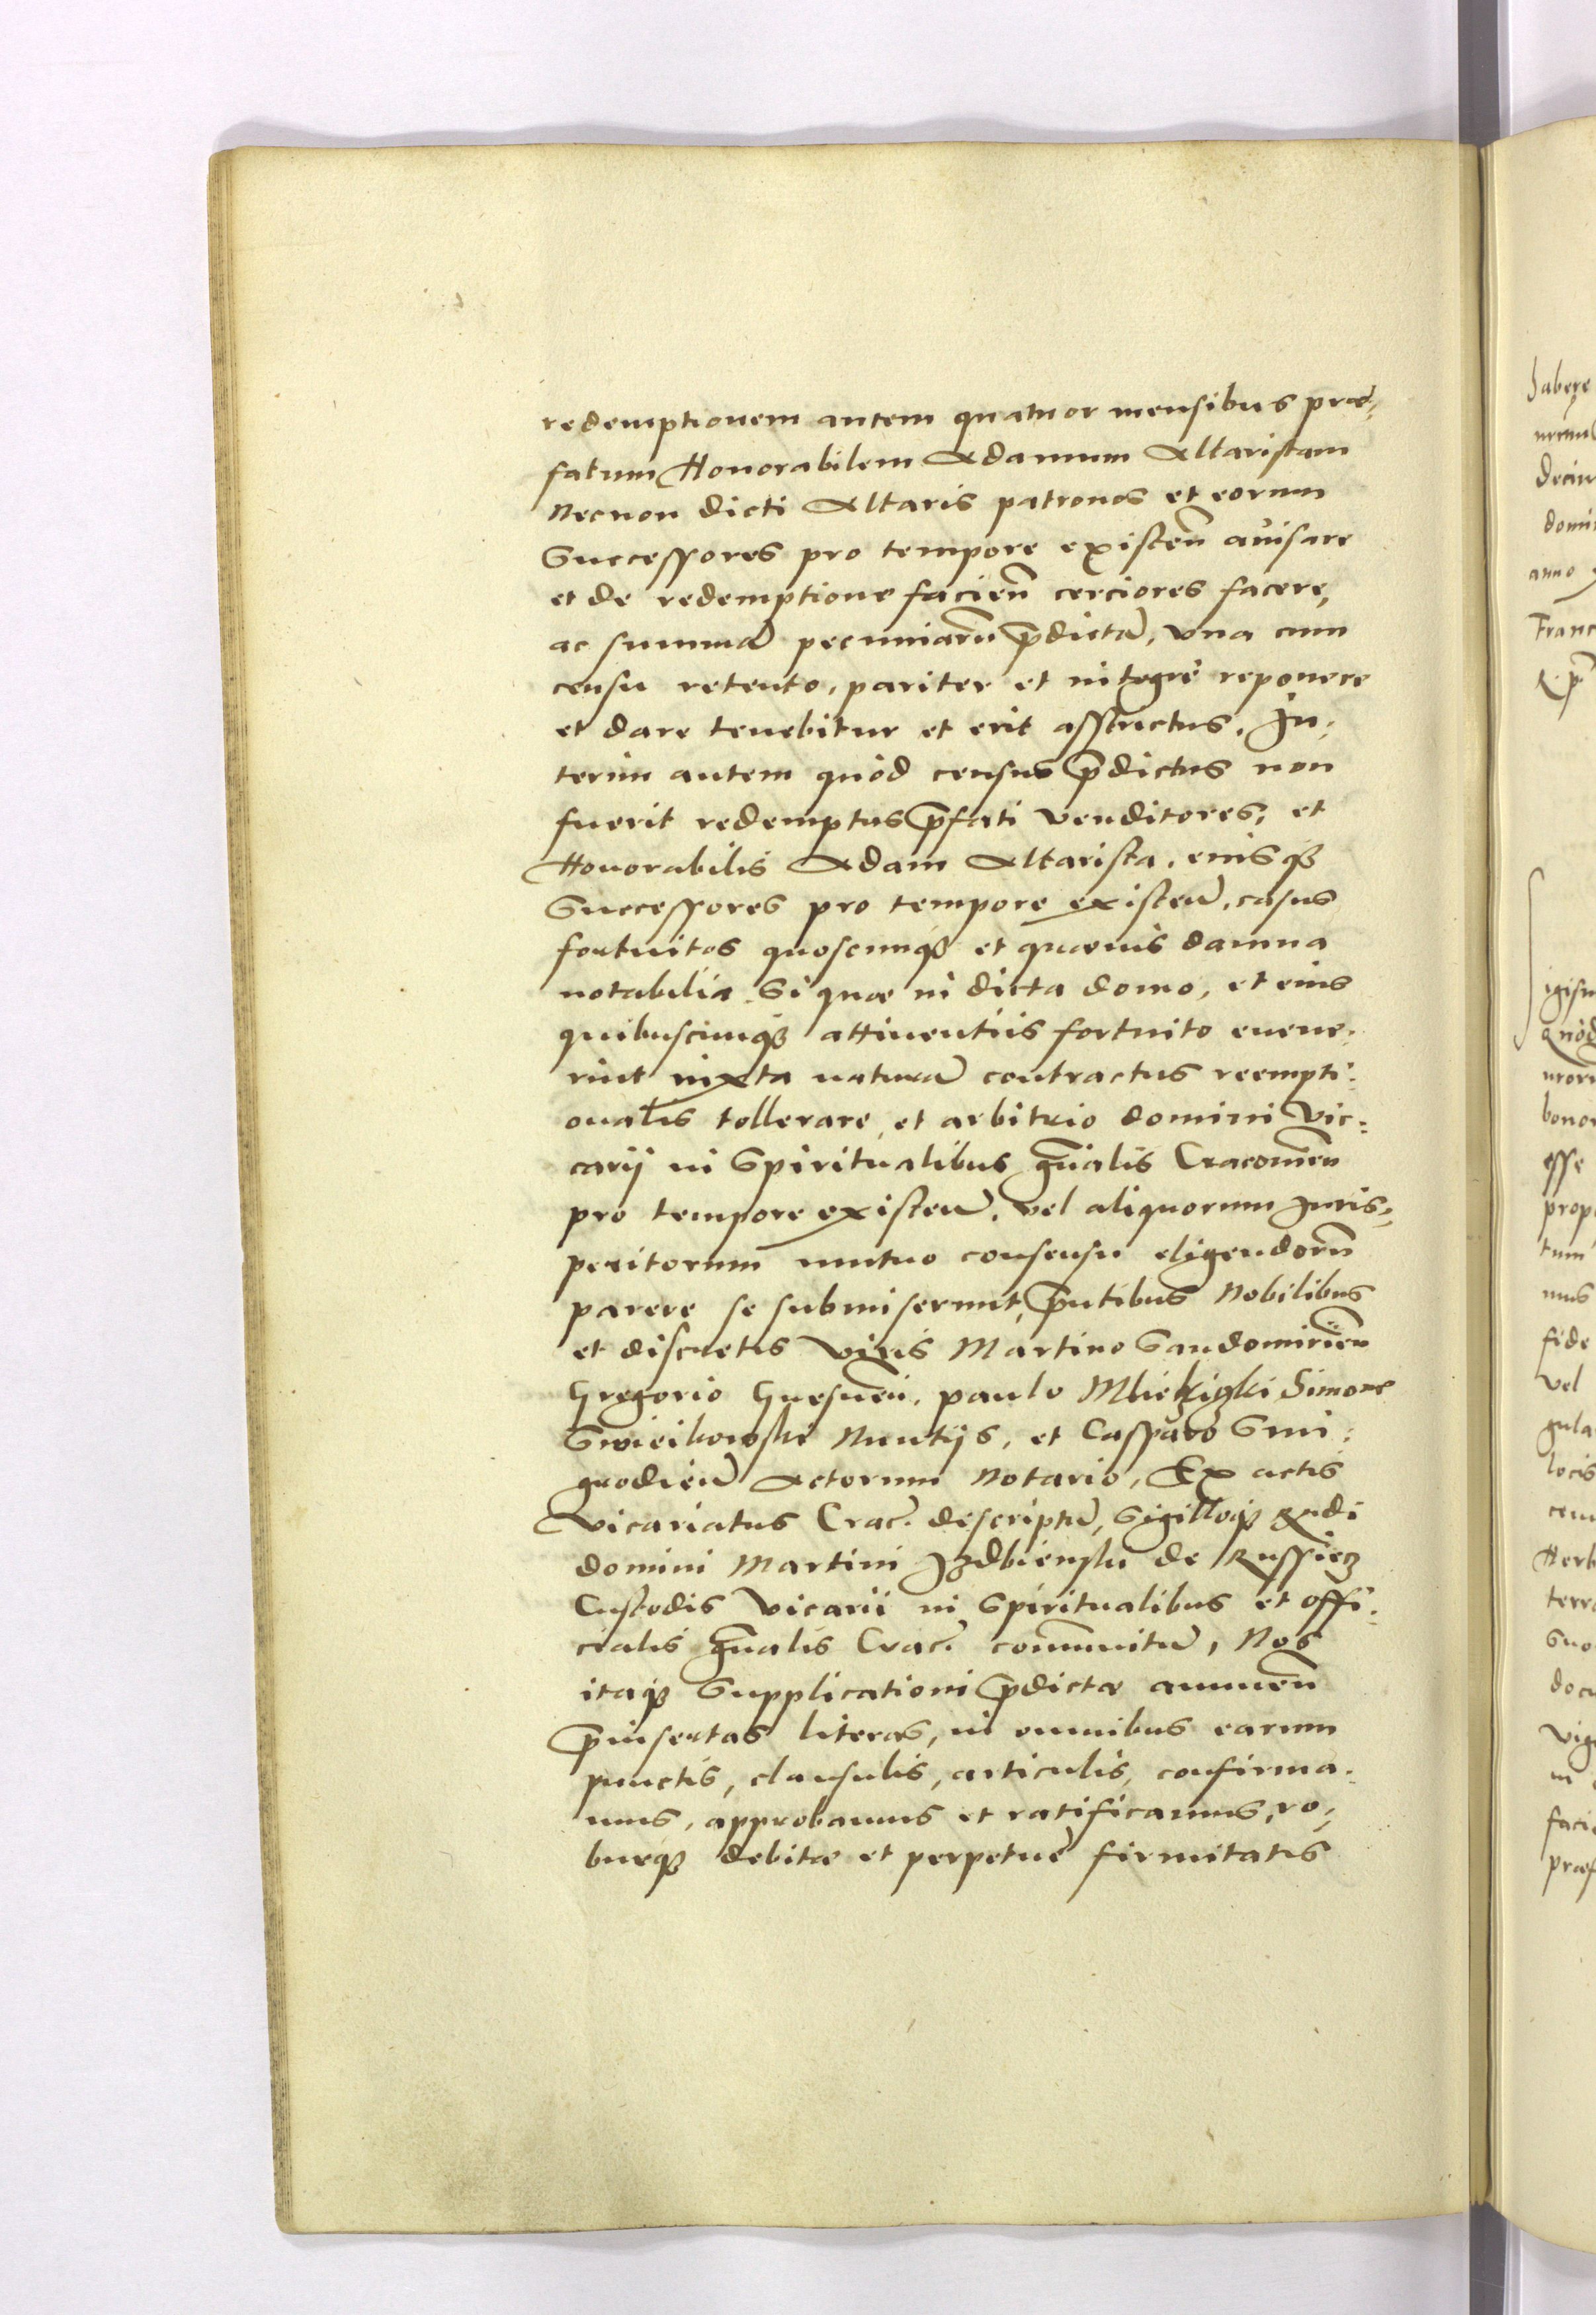 redemptionem autem quatuor mensibus præ-
fatum Honorabilem Adamum Altaristam
Necnon dicti Altaris patronos et eorum
Successores pro tempore existen̄ auisare
et de redemptione facien̄ cerciores facere,
ac summā pecuniarū p̄dictā, vna cum
censu retento, pariter et integrè reponere
et dare tenebitur et erit asstrictus. In-
terim autem quòd census p̄dictus non
fuerit redemptus p̄fati venditores, et
Honorabilis Adam Altarista, eiusqꝫ
Successores pro tempore existen̄, casus
fortuitos quoscunqꝫ et quæuis damna
notabilia. Si quæ in dicta domo, et eius
quibuscunqꝫ attinentiis fortuito euene-
rint iuxta naturā contractus reempti-
onalis tollerare, et arbitrio domini Vic-
carij in Spiritualibus gn̄alis Cracouien̄
pro tempore existen̄, vel aliquorum Juris-
peritorum mutuo consensu eligendorū
parere se submiserunt, p̄ntibus Nobilibus
et discretis Viris Martino Sandomirien̄
Gregorio Gnesnen̄, paulo Simone
Nuntijs, et Casparo Smi-
grodien̄ Actorum Notario, Ex actis
Vicariatus Crac. descriptū, Sigilloqꝫ Rndi
domini Martini Izdbienski de Russiecz
Custodis Vicarii in Spiritualibus et offi-
cialis gn̄alis Crac. com̄unitū, Nos
itaqꝫ Supplicationi p̄dictæ annuen̄
p̄insertas literas, in omnibus earum
punctis, clausulis, articulis, confirma-
mus, approbamus et ratificamus, ro-
burqꝫ debitæ et perpetuę firmitatis
Franc